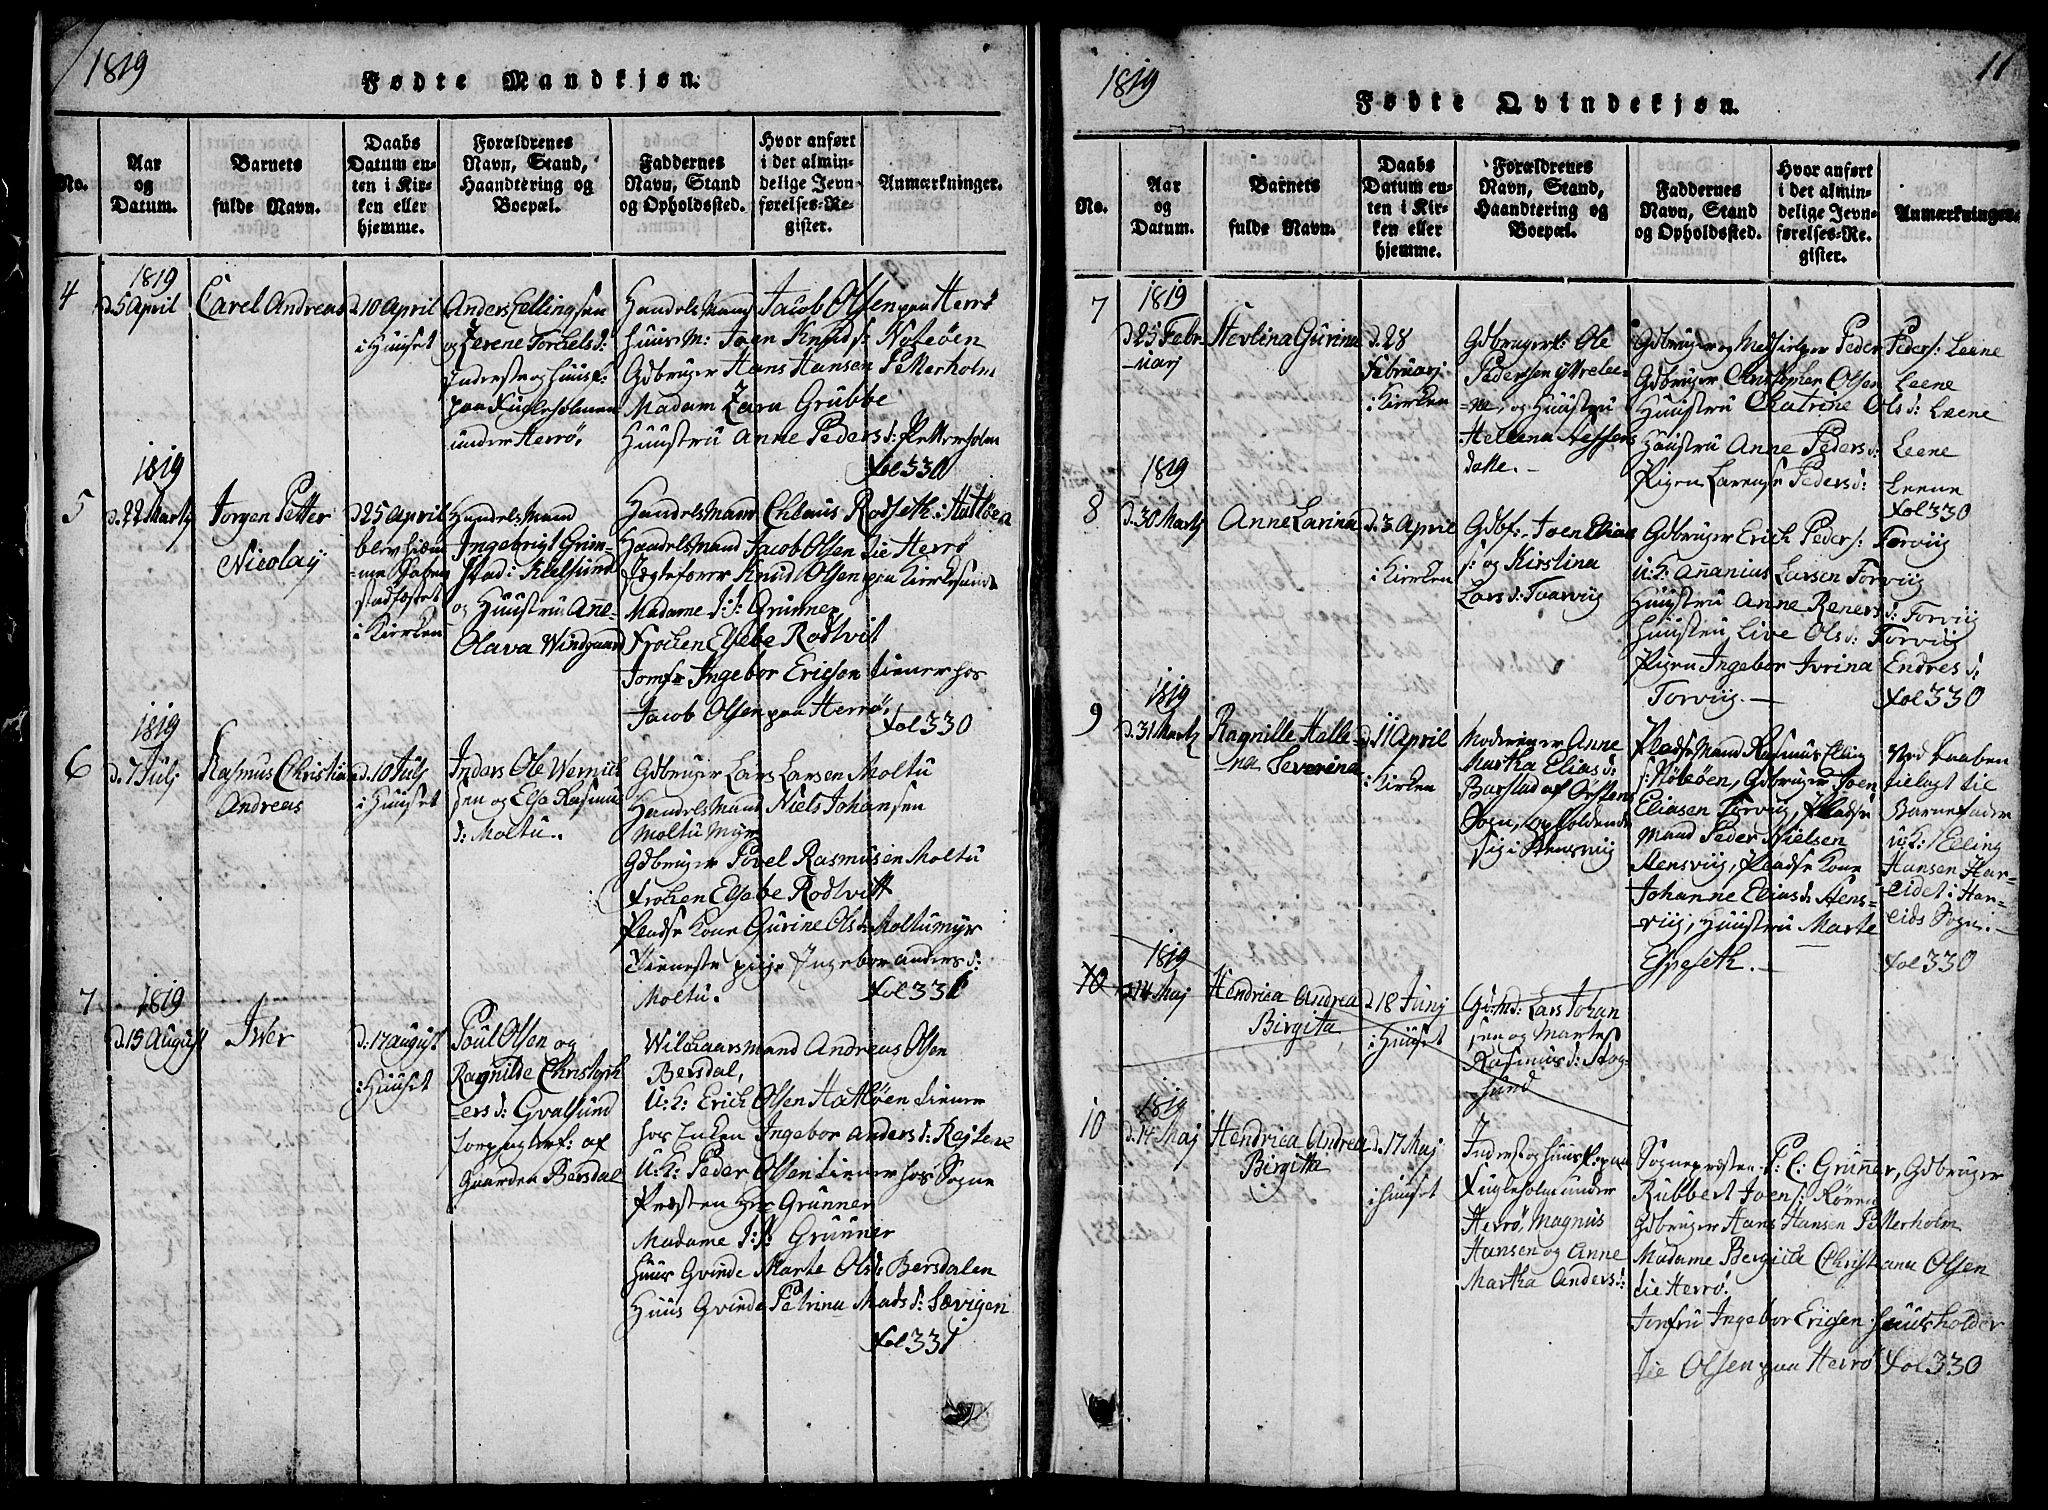 1819
Fødte Mandkjøn.
No.
Aar
og
Datum.
Barnets
fulde Navn.
Daabs
Datum en-
ten i Kir-
ken eller
hjemme.
Forældrenes
Navn, Stand,
Haandtering og
Boepæl.
Faddernes
Navn, Stand
og Opholdssted.
Hvor anført
i det almin-
delige Jevn-
førelses-Re-
gister.
Anmærkninger.
4
1819
d. 5 April
Carel Andreas
d. 10 April
i Huuset
Anders Ellingsen
og Serene Torkels d:
paa Fugleholmen
under Herrø.
Handels Mand Jacob Olsen paa Herrø
Huus M: Joen Knuds: Notøen
Gdbruger Hans Hansen Petterholm
Madam Zara Grubbe
Huustru Anne Peders d: Petterholm
Fol 330
5
1819
d. 22 Martz
Jorgen Petter
Nicolaÿ
d. 25 April
blev hiem-
me
stadfæstet
i Kirken
Handels Mand
Ingebrigt Grim-
stad i
og Huustru Anne
Olava Windgaard
Handels Mand Chlaus Rodseth i Hatløen
Handels Mand Jacob Olsen tie Herrø
Knud Olsen paa
Madame J: J: Grunner
Frøken Elsebe Rodtvit
Jomfr Ingebor Ericsen tiener hos
Jacob Olsen paa Herrø.
Fol 330
6
1819
d. 7 Julj
Rasmus Christian
Andreas
d. 10 Julj
i Huuset
Inders Ole Wernich
sen og Else Rasmus
d: Moltu.
Gdbruger Lars Larsen Moltu
Handels Mand Niels Johansen
Moltu Myr
Gdbruger Povel Rasmusen Moltu
Frøken Elsebe Rodtvitt
Pladse Kone Gurine Ols d: Moltumyr
Tieneste pige Ingebor Anders d:
Moltu.
Fol 331
7
1819
d. 15 August
Iver
d: 17 August
i Huuset
Poul Olsen og
Ragnilde Christoph
ers d: Gvalsund
af
Gaarden Bersdal
Andreas Olsen
Bersdal,
U: K: Erich Olsen Hatløen tiener
hos Enken Ingebor Anders d:
U: K: Peder Olsen tiener hos Sogne
Præsten Hr: Grunner
Madame J: J: Grunner
Huus Qvinde Marte Ols d: Bersdalen
Huus Qvinde Petrina Mads d: Sævigen
Fol 331
1819
11
Fødte Qvindekjøn.
No.
Aar
og
Datum.
Barnets
fulde Navn.
Daabs
Datum en-
ten i Kir-
ken eller
hjemme.
Forældrenes
Navn, Stand,
Haandtering og
Boepæl.
Faddernes
Navn, Stand
og Opholdssted.
Hvor anført
i det almin-
delige Jevn-
førelses-Re-
gister.
Anmærkninger.
7
1819
d. 25 Febr
uarj
Stevlina Gurina
d. 28
Februarj
i Kirken
Gdbruger: Ole
Pedersen
og Huustru
Hellena
datte. —
Gdbruger og Medhielper Peder Peders: Leene
Gdbruger Christopher Olsen Leene
Huustru Chatrine Ols d: Leene
Huustru Anne Peders d: Leene
Pigen Larense Peders d: Leene
Fol 330
8
1819
d. 30 Martz
Anne Larina
d. 3 April
i Kirken
Gdbr. Joen Elias
s: og Kirstina
Lars d:
Gdbruger Erich Peders: Torviig
U: K: Ananius Larsen Torviig
Huustru Anne Reners d: Torviig
Huustru Live Ols d: Torviig
Pigen Ingebor Ivrina Endres d:
Torviig. —
Fol 330
9
1819
d. 31 Martz
Ragnille Helle-
na Severina
d. 11 April
i Kirken
Moderen er Anne
Martha Elias d:
Barstad af Ørstens
Sogn,
sig i
Pladse Mand Rasmus Elling
s: Noteøen, Gdbruger Joen
Eliasen Torviig, Pladse
Mand Peder Nielsen
Hensviig, Pladse Kone
Johanne Elias d: Hens-
viig, Huustru Marte
Espeseth. —
Ved Daaben
Barnefader
U: K: Elling
Hansen Har-
eidet i Har-
eids Sogn. —
Fol 330
10
1819
d. 14 Maj
Hendrica Andrea
Birgita
d. 18 Junj
i Huuset
Lars Johan
sen og Marte
Rasmus d:
sund
10
1819
d. 14 Maj
Hendrica Andrea
Birgitta
d. 17 Maj
i Huuset
Fugleholm under
Herrø, Magnus
Hansen og Anne
Martha Anders d:
Sognepræsten Grunner, Gdbruger
Rubbert Joens:
Gdbruger Hans Hansen Petterholm
Madame Bergitte Christiana Olsen
tie Herrø.
Jomfru Ingebor Ericsen Huusholder
tie Olsen paa Herrø Fol 330